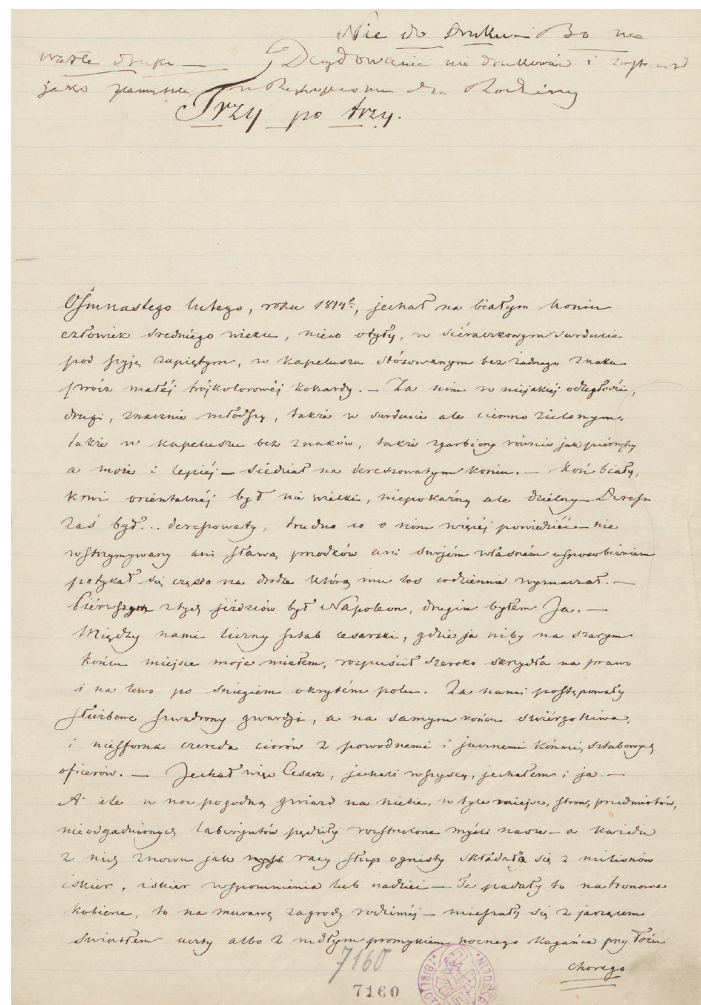 Nie do druku — Bo nie
warte druku — Decydowania nie drukować i
jako pamiątkę w Rękopismie dla Rodziny
Trzy po trzy.
Ośmnastego lutego, roku 1814º, jechał na białym koniu
człowiek średniego wieku, nieco otyły, w siéraczkowym surducie
pod szyję zapiętym, w kapeluszu stósowanym bez żadnego znaku
prócz małéj trójkolorowéj kokardy. — Za nim w niejakiéj odległości,
drugi, znacznie młodszy, także w surducie ale ciemno zielonym,
także w kapeluszu bez znaków, także zgarbiony równie jak piérwszy
a może i lepiéj — siedział na dereszowatym koniu. — Koń biały,
krwi orientalnéj był nie wielki, niepokaźny ale dzielny — Deresz
zaś był... dereszowaty, trudno co o nim więcéj powiedziéć — nie
wstrzymywany ani sławą przodków ani swojém własném usposobieniem
potykał się często na drodze którą mu los codziennie wymierzał. —
Piérwszym z tych jeźdźców był Napoleon, drugim byłem Ja. —
Między nami liczny sztab cesarski, gdzie ja niby na szarym
końcu miejsce moje miałem, rozpuścił szeroko skrzydła na prawo
i na lewo po śniegiem okrytém polu. Za nami postępowały
służbowe szwadrony gwardji, a na samym końcu świérgotliwa,
i niesforna czereda ciurów z powodnemi i jucznemi końmi, sztabowych
oficerów. — Jechał więc Cesarz, jechali wszyscy, jechałem i ja —
A ile w noc pogodną gwiazd na niebie, w tyle miejsc, stron, przedmiotów,
nieodgadnionych labiryntów pędziły rozstrzelone myśli nasze — a każda
z nich znowu jak racy słup ognisty składała się z milionów
iskier, iskier wspomnienia lub nadziei — Te padały to na tronowe
kobierce, to na murawę zagrody rodzimej — mieszały się z jarzącem
światłem uczty albo z mdłym promykiem nocnego kagańca przy łożu
chorego
7160
7160